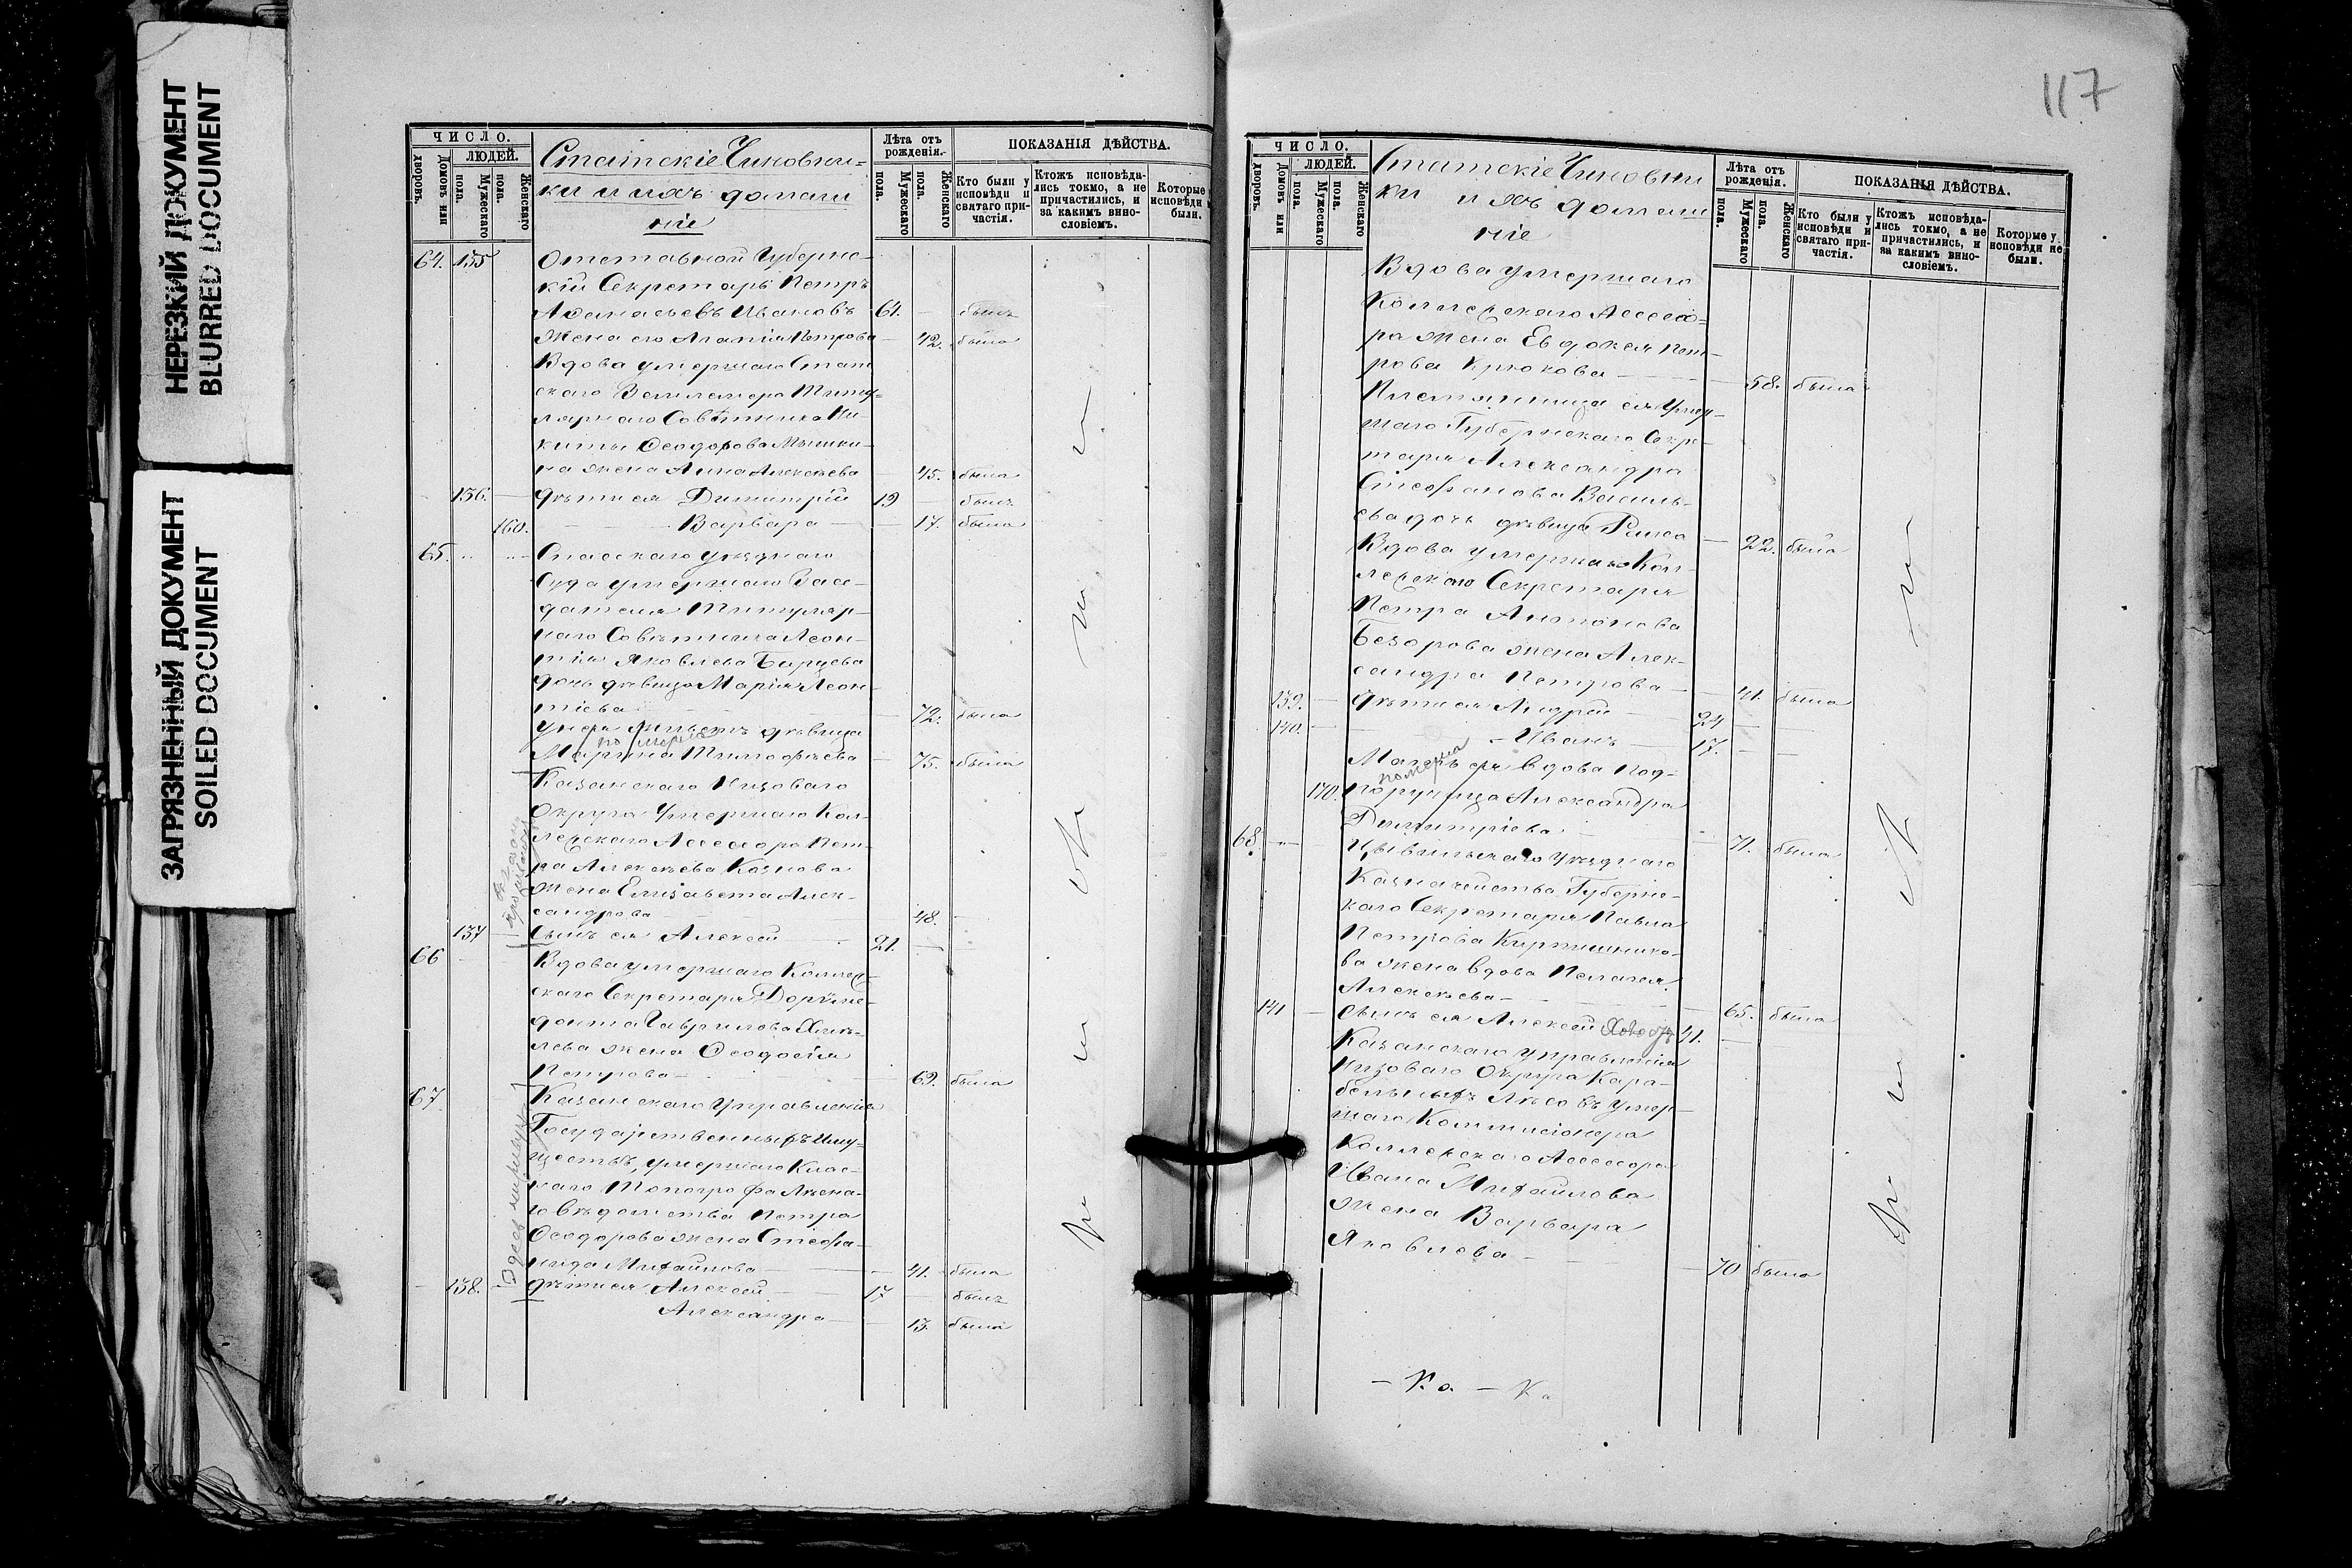 НЕРЕЗКИЙ ДОКУМЕНТ
BLURRED DOCUMENT
ЗАГРЯЗНЕННЫЙ ДОКУМЕНТ
SOILED DOCUMENT
ЧИСЛО.
ЛЮДЕЙ.
Домовъ или дворовъ.
Мужескаго пола.
Женскаго пола.
Статскіе Чиновни=
ки и ихъ домаш
ніе
Лѣта отъ рожденія.
Мужескаго пола.
Женскаго пола.
ПОКАЗАНІЯ ДѢЙСТВА.
Кто были у исповѣди и святаго при-частія.
Ктожъ исповѣда-лись токмо, а не причастились, и за какимъ вино-словіемъ.
Которые исповѣди были.
64. 135 Отставной Губернс-
кій Секретарь Петръ
Аѳанасьевъ Ивановъ 61. – былъ
Жена его Агапія Петрова – 42. была
Вдова умершаго Стат
скаго Землемера Титу=
лярнаго Совѣтника Ни-
киты Ѳеодорова Мышки-
на жена Анна Алексѣева – 45. была
136. – дѣти ея Димитрій 19 – былъ
160. – Варвара – 17. была
65. Спасскаго уѣзднаго
Суда умершаго Засе-
дателя Титуляр-
наго Совѣтника Леон-
тія Яковлева
дочь дѣвица Марія Леон
тіева – 72. была
у нея живетъ дѣвица
померла
Марина Тимофѣева – 75. была
Казанскаго Низоваго
Округа Умершаго Кол-
лежскаго Ассесора Пет-
ра Алексѣева Казнова
жена Елизавета Алек-
сандрова – 48. –
137 – Сынъ ея Алексей – 21. –
66 Вдова умершаго Коллеж-
скаго Секретаря Доримe-
донта Гаврилова
лева жена Ѳеодосія
Петрова – 69. была
67. Казанскаго Управленія
Государственныхъ Иму-
ществъ, умершаго Клас-
наго Топографа Лѣсна-
го вѣдомства Петра
Ѳеодорова жена Стефа-
нида Михайлова – 41. была
138. – дѣти ея Алексей – 17 – былъ
Александра – 13. была
117
ЧИСЛО.
ЛЮДЕЙ.
Домовъ или дворовъ.
Мужескаго пола.
Женскаго пола.
Статскіе Чиновни
ки и ихъ домаш
ніе
Лѣта отъ рожденія.
Мужескаго пола.
Женскаго пола.
ПОКАЗАНІЯ ДѢЙСТВА.
Кто были у исповѣди и святаго при-частія.
Ктожъ исповѣда-лись токмо, а не причастились, и за какимъ вино-словіемъ.
Которые у исповѣди не были.
Вдова умершаго
Коллежскаго Ассесо=
ра жена Евдокея Пет-
рова Крюкова – 58. была
Племянница ея Умер-
шаго Губернскаго Секре-
таря Александра
Стефанова Василь-
ева дочь дѣвица Раиса – 22. была
Вдова умершаго Кол-
лежскаго Секретаря
Петра Антонова
жена Алек-
сандра Петрова – 41. была
139. – дѣти ея Андрей – 24 –
140. – Иванъ – 17. –
Мать ея вдова Под-
померла
170. поручица Александра
Димитріева – 71. была
68. Цывильскаго уѣзднаго
Казначейства Губернс-
каго Секретаря Павла
Петрова
ва жена вдова Пелагея
Алексѣева – 65. была
141 – Сынъ ея Алексей 41. –
Казанскаго управленія
Низоваго Округа Кора-
бельныхъ Лѣсовъ Умер-
шаго Коммисіонера
Коллежскаго Ассесора
Ивана Михайлова
жена Варвара
Яковлева – 70 была